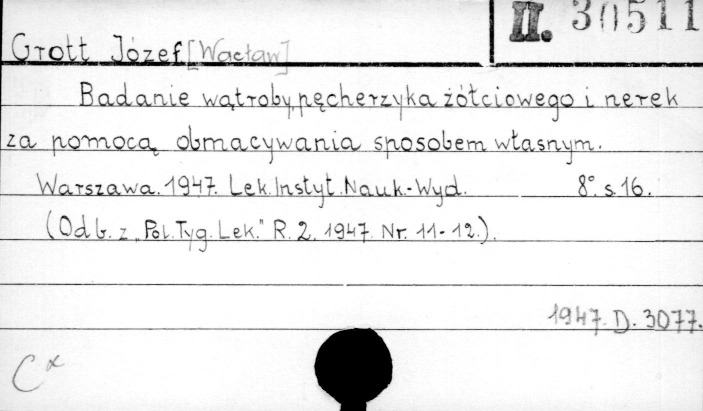 II. 30511
Grott Józef [Wacław]
Badanie wątroby, pęcherzyka żółciowego i nerek
za pomocą obmacywania sposobem własnym.
Warszawa. 1947. Lek. Instyt. Nauk.-Wyd. 8° s. 16.
(Odb. z "Pol. Tyg. Lek." R. 2. 1947. Nr. 11-12.).
1947. D. 3077.